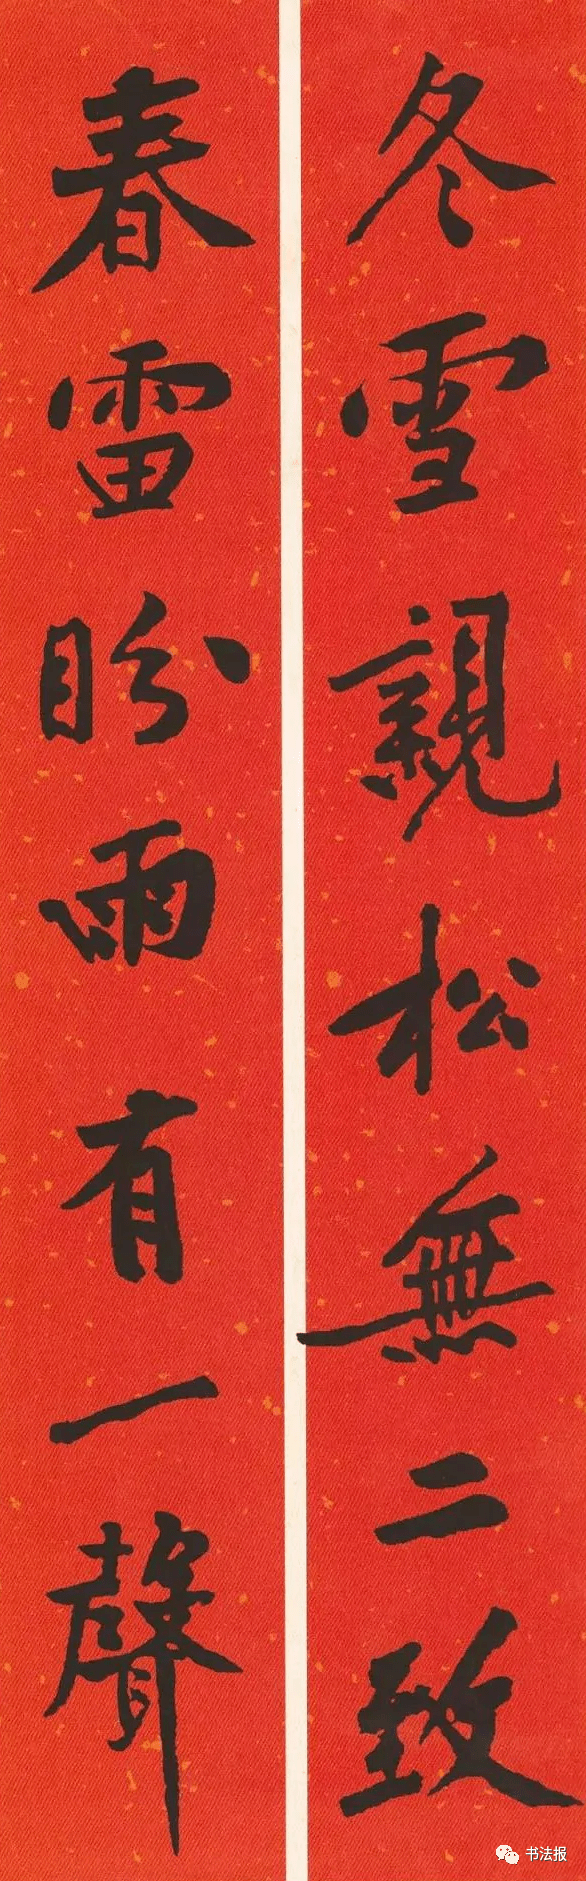 冬雪親松無二致
春雷盼雨有一聲
书法报